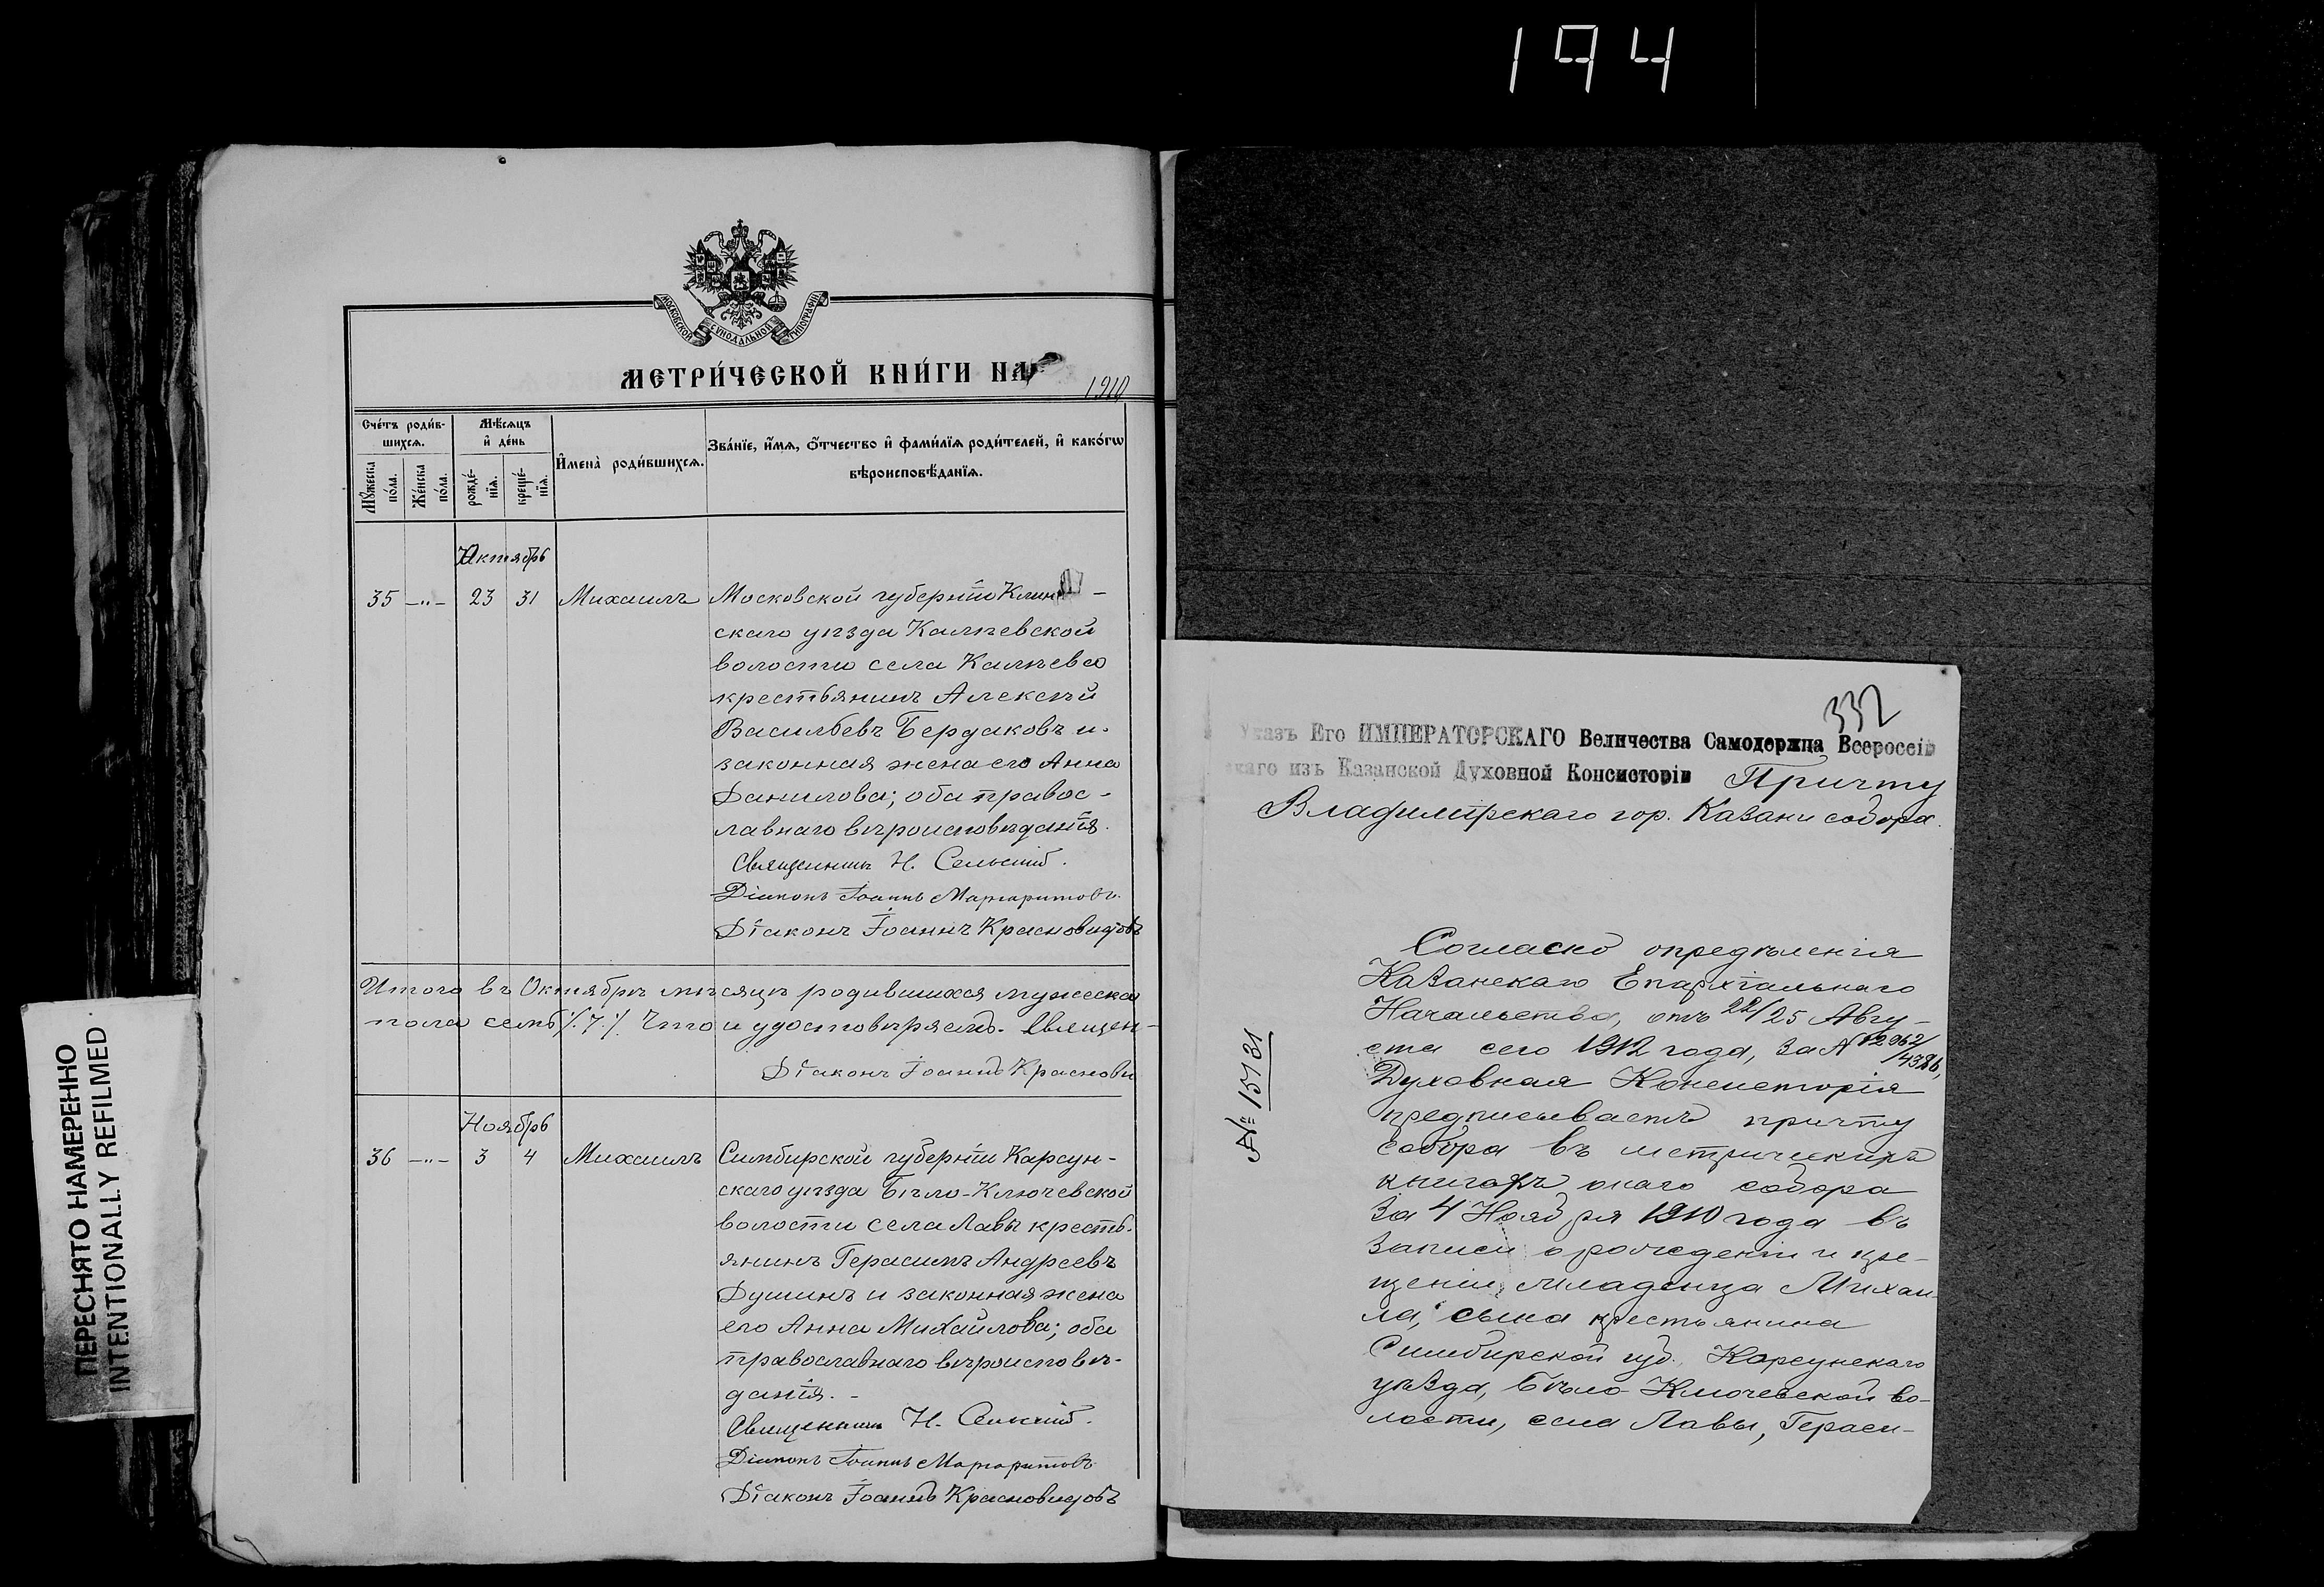 194
МОСКОВСКОЙ СѴНОДАЛЬНОЙ ТИПОГРАФІИ
МЕТРИ́ЧЕСКОЙ КНИ́ГИ НА
1910
Сче́тъ роди́в-
шихсѧ.
Мꙋжеска
по́ла.
Же́нска
по́ла.
Мѣ́сѧцъ
и҆ де́нь
рожде́-
нїѧ.
креще́-
нїѧ.
И҆мена̀ роди́вшихсѧ.
Зва́нїе, и҆́мѧ, ѻ҆́тчество и҆ фами́лїѧ роди́телей, и҆ како́гѡ
вѣроисповѣ́данїѧ.
Октябрь
35 -"- 23 31 Михаилъ Московской губерніи Клин-
скаго уѣзда Калѣевской
волости села Калѣево
крестьянинъ Алексѣй
Васильевъ Бердаковъ и
законная жена его Анна
Данилова; оба правос-
лавнаго вѣроисповѣданія.
Священникъ Н. Сельскій.
Діаконъ Іоаннъ Маргаритовъ.
Діаконъ Іоаннъ Красновидовъ
Итого въ Октябрѣ мѣсяцѣ родившихся мужеска
пола семь /.7./. Что и удостовѣряемъ. Священ-
Діаконъ Іоаннъ Краснови
Ноябрь
36 -"- 3 4 Михаилъ Симбирской губерніи Карсун-
скаго уѣзда Бѣло-Ключевской
волости села Лавы кресть-
янинъ Герасимъ Андреевъ
Душинъ и законная жена
его Анна Михайлова; оба
православнаго вѣроисповѣ-
данія. -
Священникъ Н. Сельскій.
Діаконъ Іоаннъ Маргаритовъ
Діаконъ Іоаннъ Красновидовъ
ПЕРЕСНЯТО НАМЕРЕННО
INTENTIONALLY REFILMED
332
Указъ Его ИМПЕРАТОРСКАГО Величества Самодержца Всероссій
скаго изъ Казанской Духовной Консисторіи Причту
Владимірскаго гор. Казани собора.
№ 15131
Согласно опредѣленія
Казанскаго Епархіальнаго
Начальства, отъ 22/25 Авгу-
ста сего 1912 года, за № 12962/
Духовная Консисторія
предписываетъ причту
собора въ метрическихъ
книгахъ онаго собора
за 4 Ноября 1910 года въ
записи о рожденіи и кре-
щеніи младенца Михаи-
ла, сына крестьянина
Симбирской губ., Карсунскаго
уѣзда, Бѣло-Ключевской во-
лости, села Лавы, Гераси-